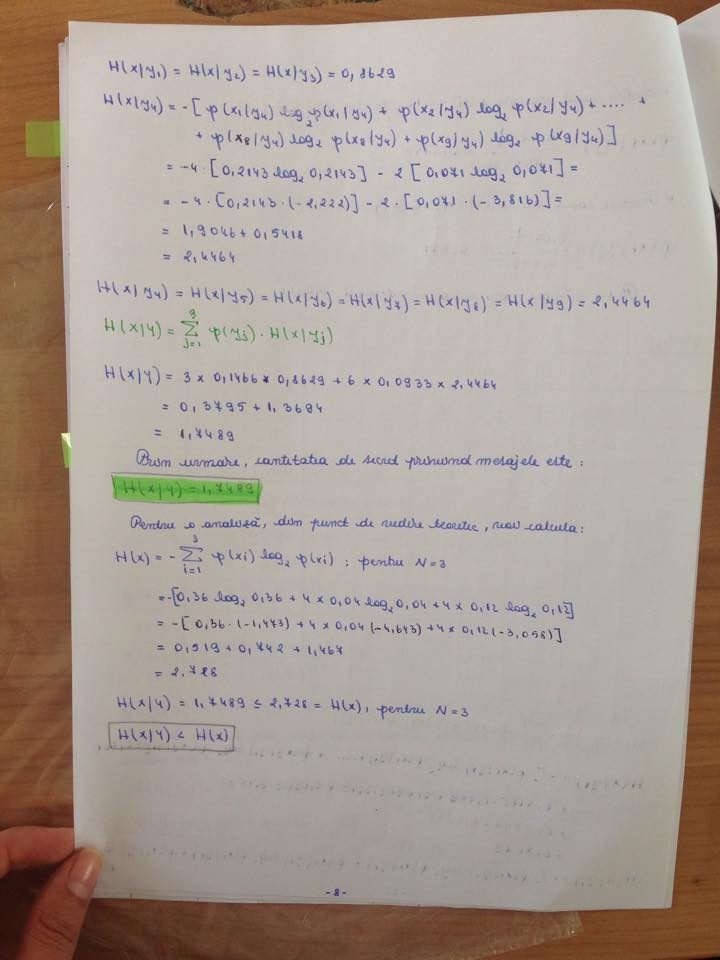 H(x/y₁) = H(x/y₂) = H(x/y₃) = 0,8629
H(x/y₄) = -[ p(x₁/y₄) log₂ p(x₁/y₄) + p(x₂/y₄) log₂ p(x₂/y₄) + .... +
+ p(x₈/y₄) log₂ p(x₈/y₄) + p(x₉/y₄) log₂ p(x₉/y₄) ]
= -4 · [0,2143 log₂ 0,2143] - 2 [0,071 log₂ 0,071] =
= -4 · [0,2143 · (-2,222)] - 2 · [0,071 · (-3,816)] =
= 1,9046 + 0,5418
= 2,4464
H(x/y₄) = H(x/y₅) = H(x/y₆) = H(x/y₇) = H(x/y₈) = H(x/y₉) = 2,4464
H(x/y) = ∑_{j=1}^{9} p(yj) · H(x/yj)
H(x/y) = 3 x 0,1466 x 0,8629 + 6 x 0,0933 x 2,4464
= 0,3795 + 1,3694
= 1,7489
Prin urmare, cantitatea de secret privind mesajele este :
H(x/y) = 1,7489
Pentru o analiză, din punct de vedere teoretic, vom calcula:
H(x) = - ∑_{i=1}^{3} p(xi) log₂ p(xi) ; pentru N=3
= -[0,36 log₂ 0,36 + 4 x 0,04 log₂ 0,04 + 4 x 0,12 log₂ 0,12]
= -[ 0,36 · (-1,473) + 4 x 0,04 (-4,643) + 4 x 0,12 (-3,058)]
= 0,519 + 0,742 + 1,467
= 2,728
H(x/y) = 1,7489 ≤ 2,728 = H(x), pentru N=3
H(x/y) < H(x)
-8-